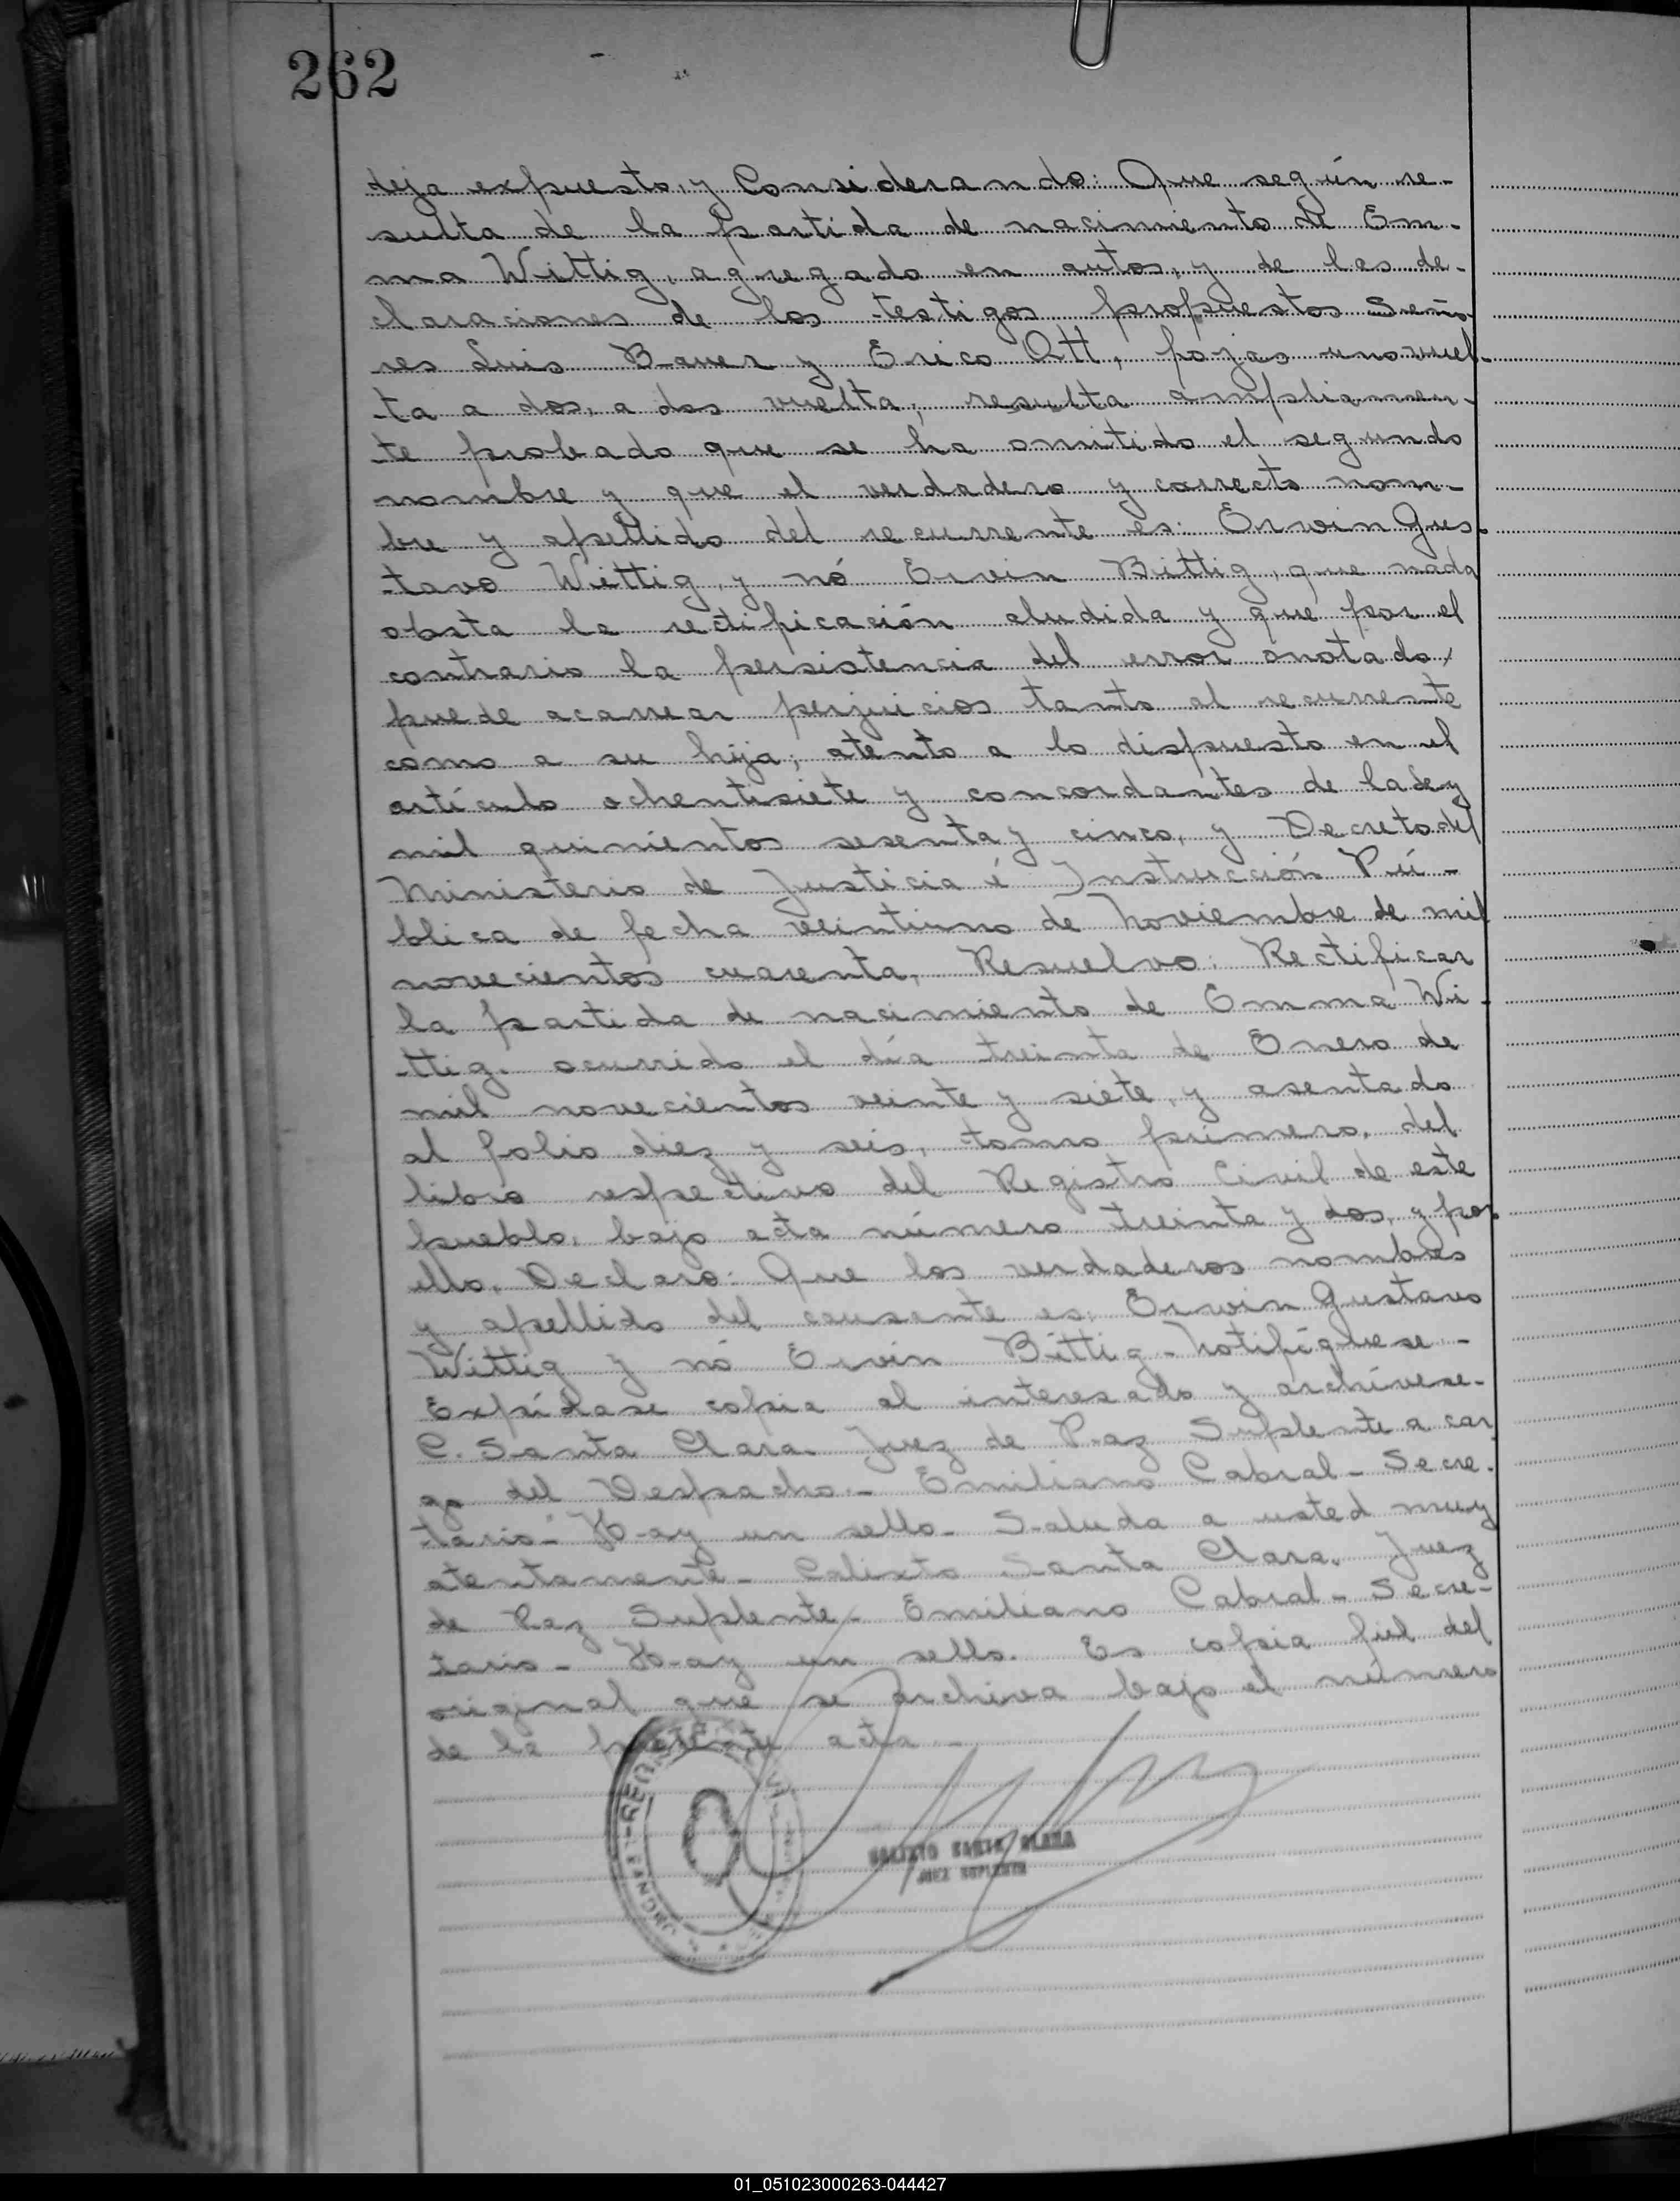 262
deja expuesto, y Considerando: Que según re-
sulta de la partida de nacimiento de Em-
ma Wittig, agregado en autos, y de las de-
claraciones de los testigos propuestos Seño-
res Luis Bauer y Erico Ott, fojas uno vuel-
ta a dos, a dos vuelta, resulta ampliamen-
te probado que se ha omitido el segundo
nombre y que el verdadero y correcto nom-
bre y apellido del recurrente es: Erwin Gus-
tavo Wittig, y nó Ervin Bittig, que nada
obsta la rectificación aludida y que por el
contrario la persistencia del error anotado,
puede acarrear perjuicios tanto al recurrente
como a su hija, atento a lo dispuesto en el
artículo ochentisiete y concordantes de la Ley
mil quinientos sesenta y cinco, y Decreto del
Ministerio de Justicia é Instrucción Pú-
blica de fecha veintiuno de Noviembre de mil
novecientos cuarenta, Resuelvo: Rectificar
la partida de nacimiento de Emma Wi-
ttig. ocurrido el día treinta de Enero de
mil novecientos veinte y siete, y asentado
al folio diez y seis, tomo primero, del
libro respectivo del Registro Civil de este
pueblo, bajo acta número treinta y dos, y por
ello, Declaro: Que los verdaderos nombres
y apellido del causante es: Erwin Gustavo
Wittig y nó Ervin Bittig - Notifíquese -
Expídase copia al interesado y archívese.
C. Santa Clara. Juez de Paz Suplente a car
go del Despacho - Emiliano Cabral - Secre-
tario - Hay un sello - Saluda a usted muy
atentamente - Calixto Santa Clara. Juez
de Paz Suplente - Emiliano Cabral - Secre-
tario - Hay un sello. Es copia fiel del
original que se archiva bajo el número
de la presente acta -
CALIXTO SANTA CLARA
JUEZ SUPLENTE
01_051023000263-044427